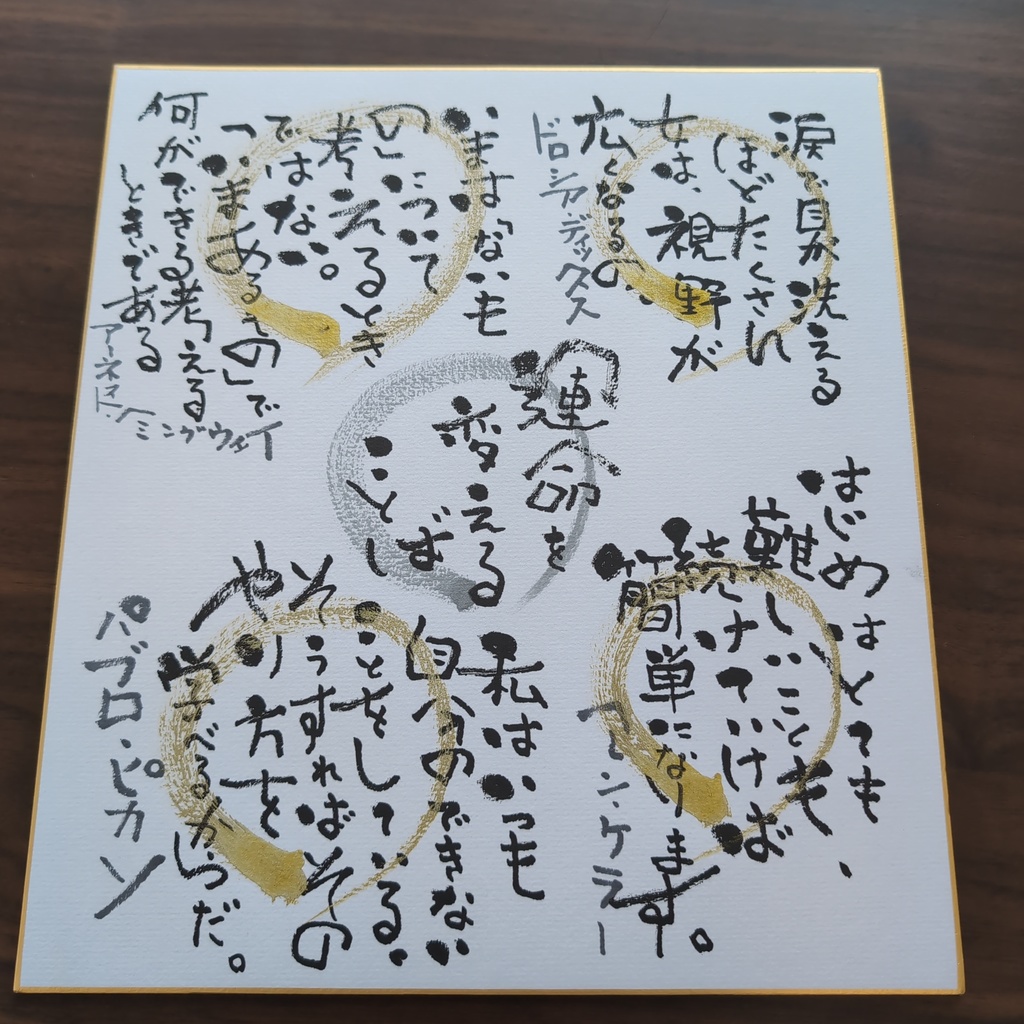 運命を
変える
ことば
涙で目が洗える
ほどたくさん
女は、視野が
広くなるの。
ドロシア・ディックス
いまは「ないも
の」について
考えるとき
ではない。
「いまあるもの」で
何ができる考える
ときである
アーネスト・ヘミングウェイ
はじめはとても
難しいことも、
続けていけば
簡単になります。
ヘレン・ケラー
私はいつも
自分のできない
ことをしている。
そうすればその
やり方を
学べるからだ。
パブロ・ピカソ